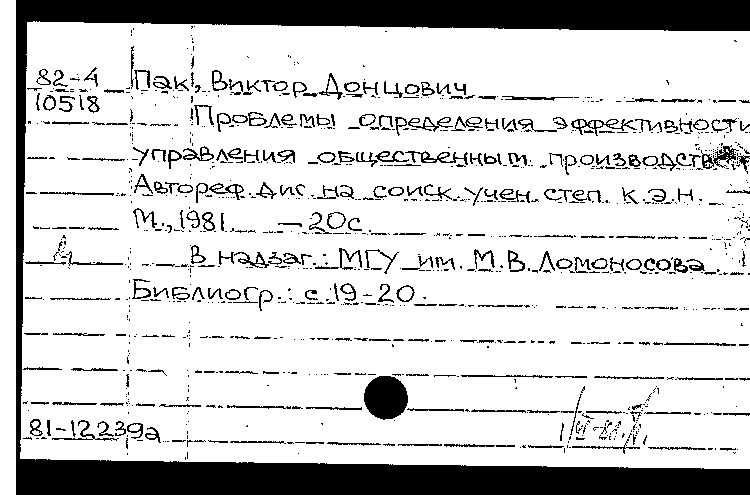 82-4 Пак, Виктор Донцович
10518
Проблемы определения эффективности
управления общественным производством
Автореф. дис. на соиск. учен. степ. к.э.н.
М., 1981. — 20с.
В надзаг.: МГУ им. М.В. Ломоносова.
Библиогр.: с. 19-20.
81-12239а